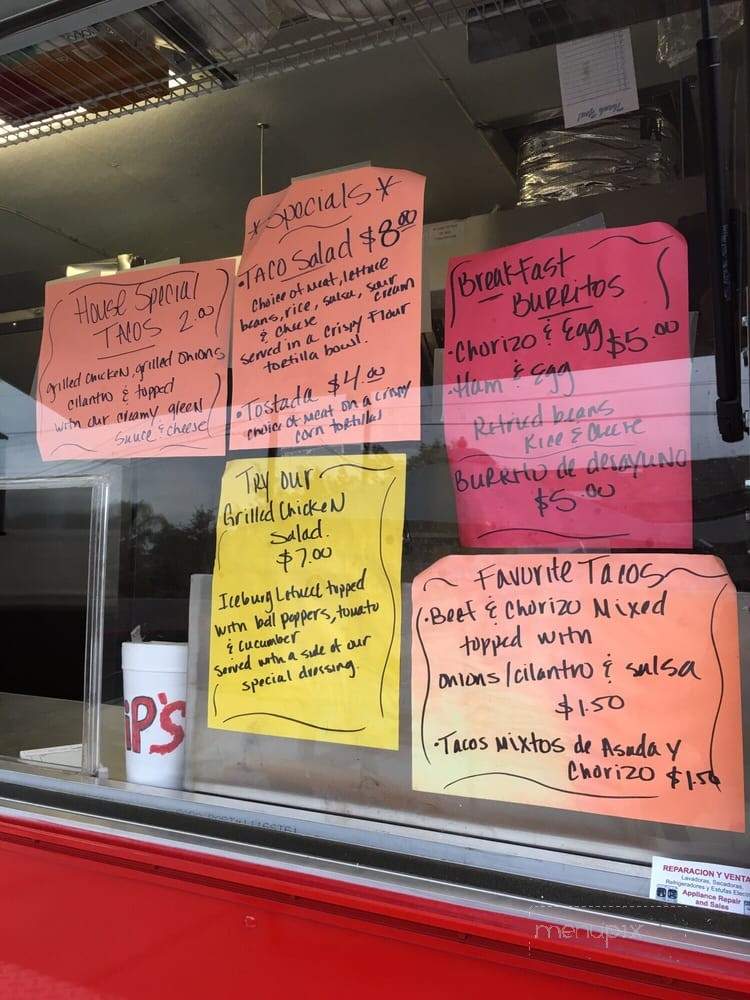 House Special
TACOS 2.00
grilled chicken, grilled onions
cilantro & topped
with our creamy green
sauce & cheese
*Specials*
•TACO Salad $8.00
Choice of meat, lettuce
beans, rice, salsa, sour
& cheese cream
served in a crispy flour
tortilla bowl.
•Tostada $4.00
choice of meat on a crispy
corn tortillas
BreakFast
BURRITOS
•Chorizo & Egg $5.00
Ham & Egg
Refried beans
Rice & Cheese
BURRITO de desayuno
$5.00
TRY our
Grilled Chicken
Salad.
$7.00
Iceburg Lettuce topped
with bell peppers, tomato
& cucumber
served with a side of our
special dressing.
Favorite Tacos
•Beef & Chorizo Mixed
topped with
onions/cilantro & salsa
$1.50
•Tacos Mixtos de Asada y
Chorizo $1.50
iP's
Thank You!
REPARACION Y VENTA
Lavadoras, Secadoras,
Refrigeradores y Estufas Elec
Appliance Repair
and Sales
menupix